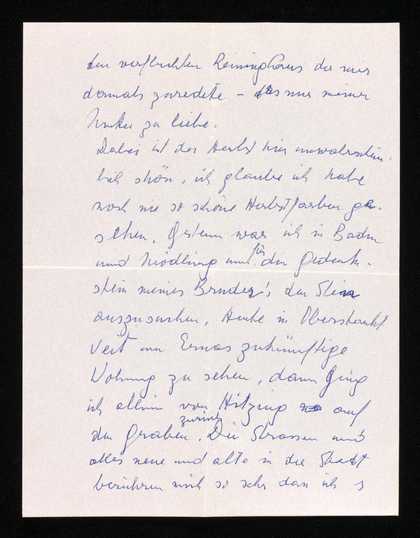 den verfluchten Reininghaus der mir
damals zuredete – nur meiner
Mutter zu liebe.
Dabei ist der Herbst hier unwahrschein-
lich schön, ich glaube ich habe
noch nie so schöne Herbstfarben ge-
sehen. Gestern war ich in Baden
und Mödling um für den Gedenk-
stein meines Bruders den Stein
auszusuchen, heute in Ober St.
Veit um Ernas zukünftige
Wohnung zu sehen, dann ging
ich allein von Hitzing auf
den Graben zurück. Die Strassen und
alles neue und alte in der Stadt
berühren mich so sehr dass ich s